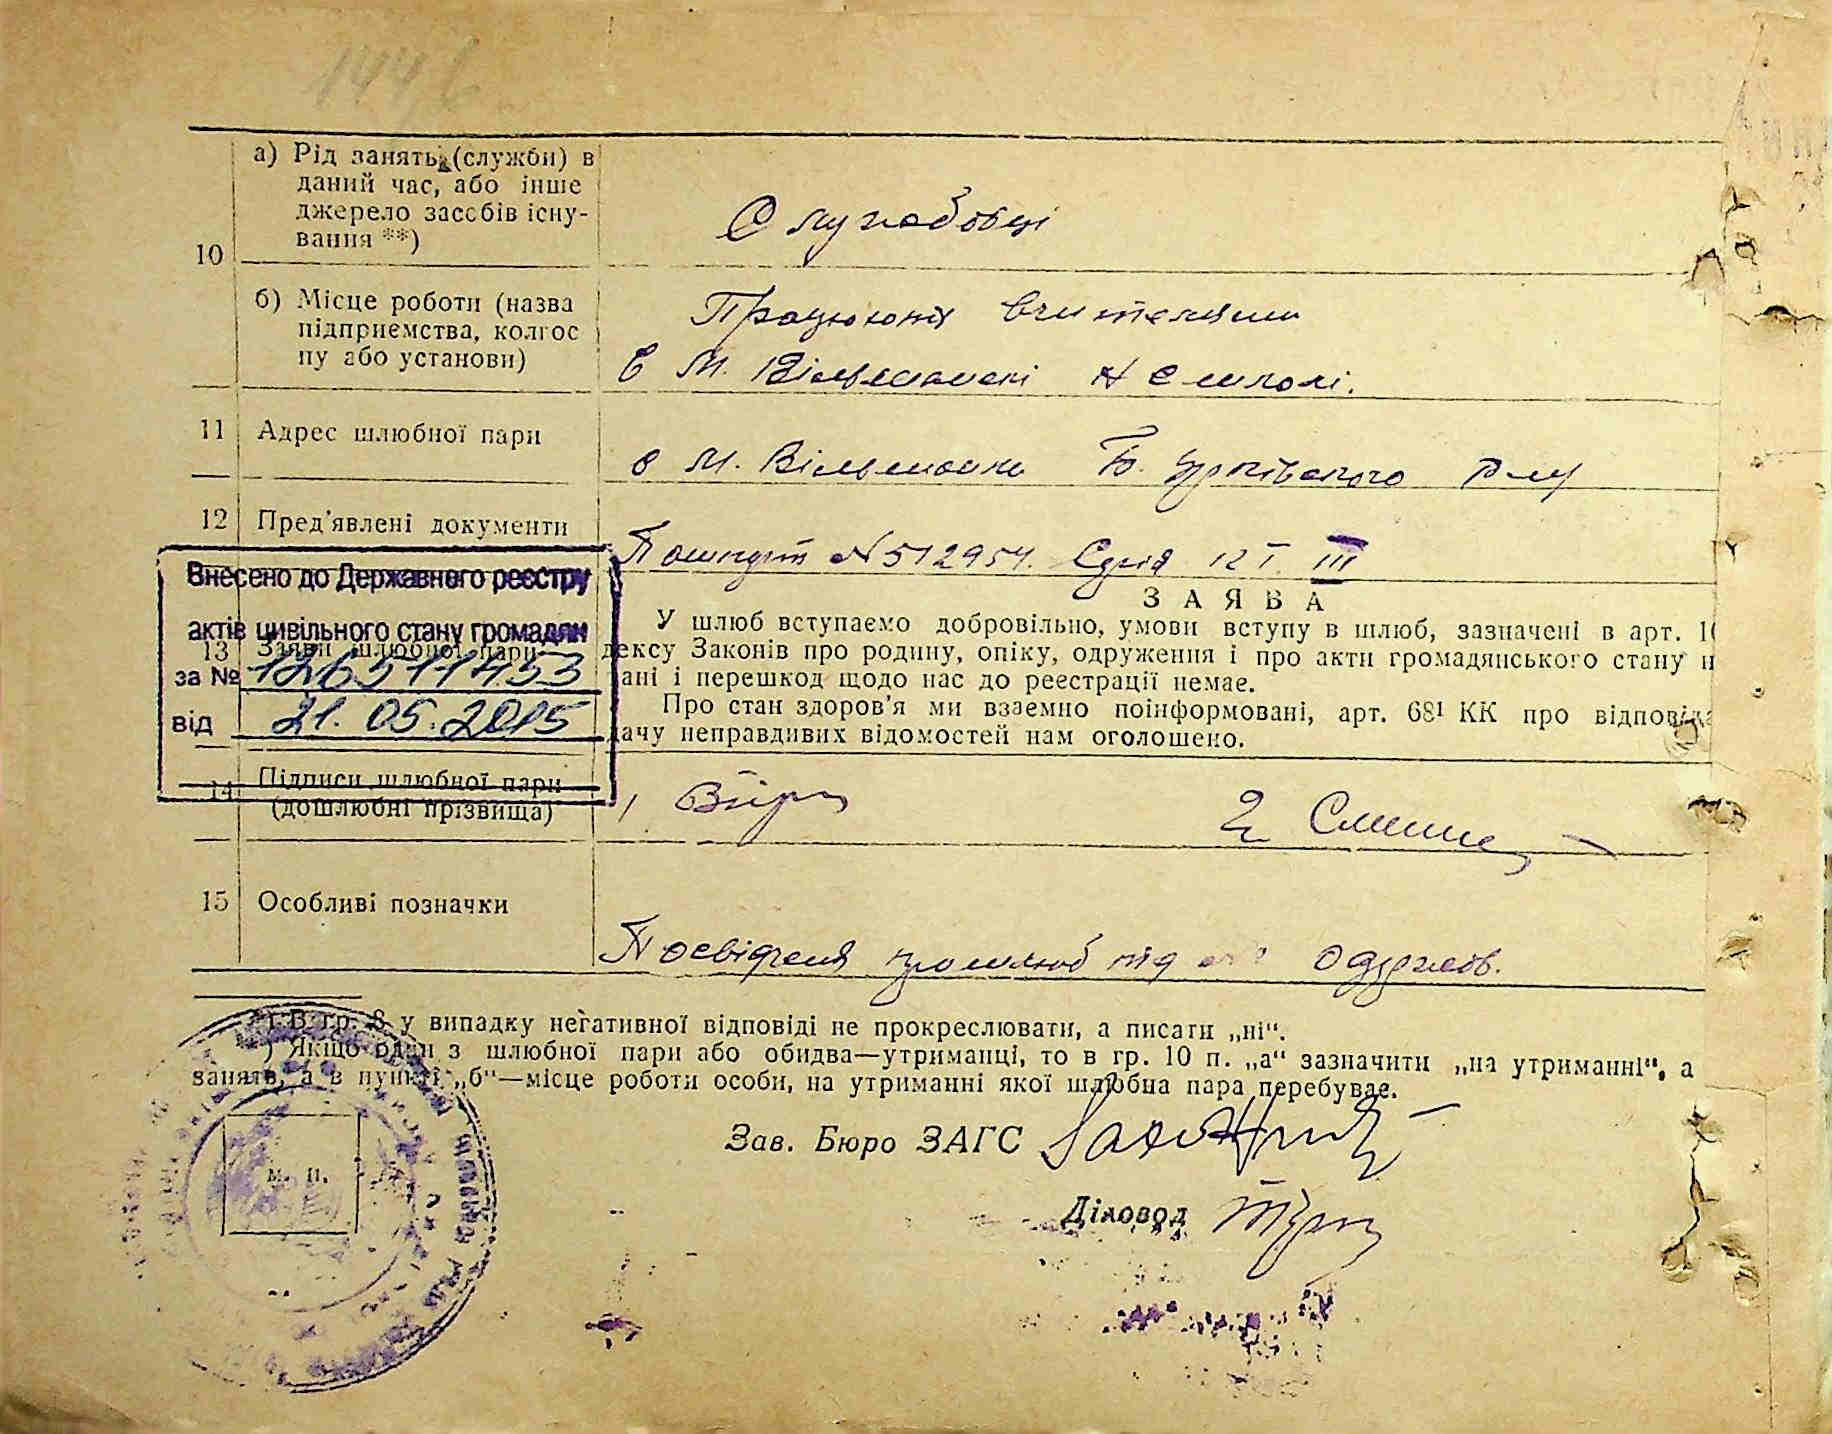 144/6
10
а) Рід занять (службн) в
даний час, або інше
джерело засобів існу-
вання **)
Службовці
б) Місце роботи (назва
підприємства, колгос
пу або установи)
Працюють вчителями
в М. Вільшанській школі.
11 Адрес шлюбної пари
в М. Вільшанка р-ну
12 Пред'явлені документи
Пашпорт № 512954. Серія III
Внесено до Державного реєстру
актів цивільного стану громадян
за № 126511453
від 21.05.2015
13 Заяви шлюбної пари
ЗАЯВА
У шлюб вступаємо добровільно, умови вступу в шлюб, зазначені в арт. 1
дексу Законів про родину, опіку, одруження і про акти громадянського стану н
ані і перешкод щодо нас до реєстрації немає.
Про стан здоров'я ми взаємно поінформовані, арт. 68¹ КК про відповід
дачу неправдивих відомостей нам оголошено.
14 Підписи шлюбної пари
(дошлюбні прізвища)
1
2
15 Особливі позначки
Посвідчення про шлюб
*) В гр. 8 у випадку негативної відповіді не прокреслювати, а писати „ні“.
) Якщо один з шлюбної пари або обидва—утриманці, то в гр. 10 п. „а“ зазначити „на утриманні“, а
занять, а в пункті „б“—місце роботи особи, на утриманні якої шлюбна пара перебуває.
м. п.
Зав. Бюро ЗАГС
Діловод